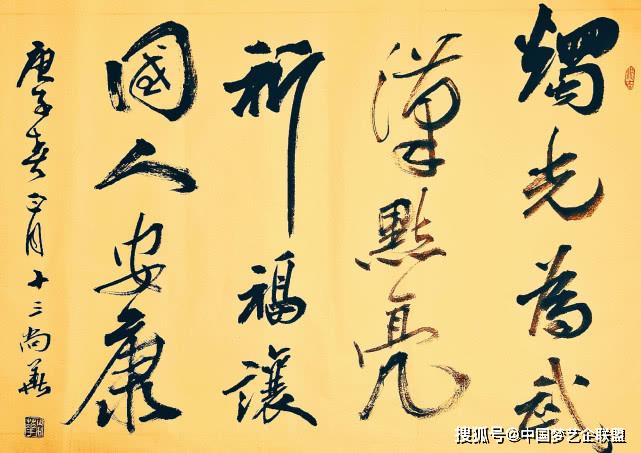 燭光為武
漢點亮
祈福讓
國人安康
庚子春正月十三尚華
搜狐号@中国梦艺企联盟